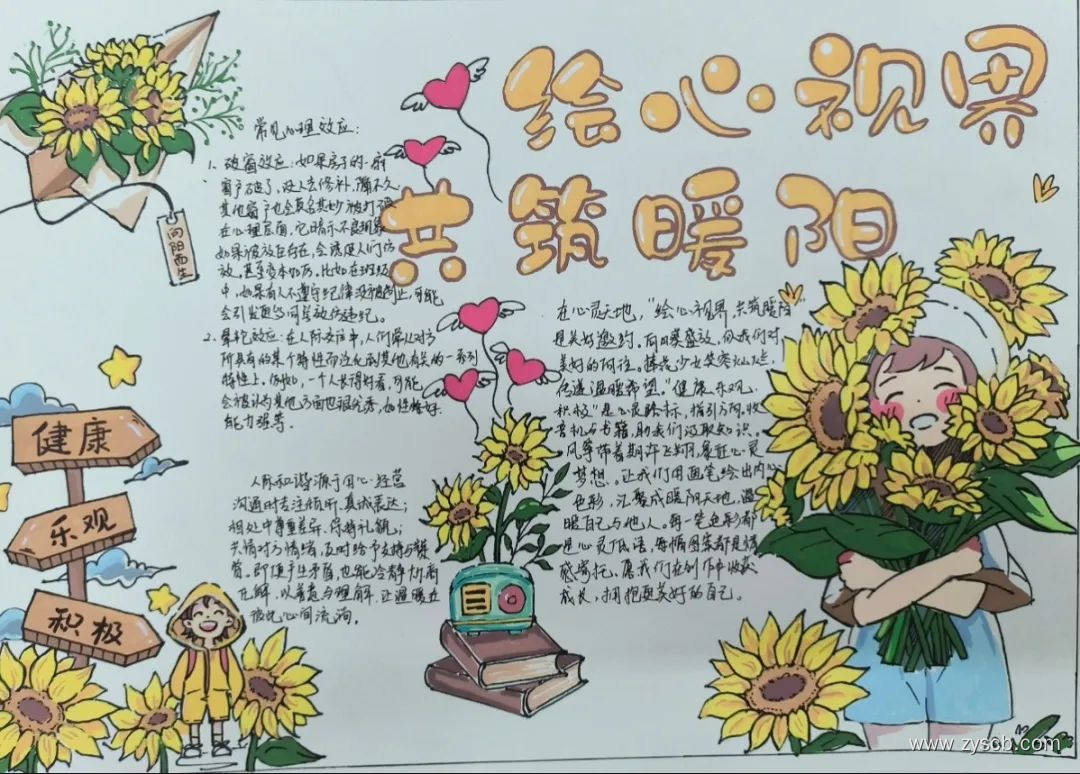 绘心视界
共筑暖阳
向阳而生
常见心理效应:
1、破窗效应:如果房子的一扇
窗户破了,没人去修补,隔不久,
其他窗户也会莫名其妙被打破
在心理层面,它暗示不良现象
如果被放任存在,会诱使人们仿
效,甚至变本加厉。比如在班级
中,如果有人不遵守纪律没被制止,可能
会引发更多同学效仿违纪。
2、晕轮效应:在人际交往中,人们常从对方
所具有的某个特性而泛化到其他有关的一系列
特性上。例如,一个人长得好看,可能
会被认为其他方面也很优秀,如性格好、
能力强等.
健康
乐观
积极
人际和谐源于用心经营
沟通时专注倾听,真诚表达;
相处中尊重差异,保持礼貌;
共情对方情绪,及时给予支持与
即便产生矛盾,也能冷静分析
化解,以善意与理解,让温暖在
彼此心间流淌.
在心灵天地,“绘心视界,共筑暖阳”
是美好邀约。向日葵盛放,似我们对
美好的向往。捧花少女笑容灿烂,
传递温暖希望。“健康、乐观、
积极”是心灵路标,指引方向。收
音机与书籍,助我们汲取知识。
风筝带着期许飞翔,象征心灵
梦想。让我们用画笔绘出内心
色彩,汇聚成暖阳天地,温
暖自己与他人。每一笔色彩都
是心灵低语,每幅图案都是情
感寄托。愿我们在创作中收获
成长,拥抱更美好的自己。
www.zyscb.com